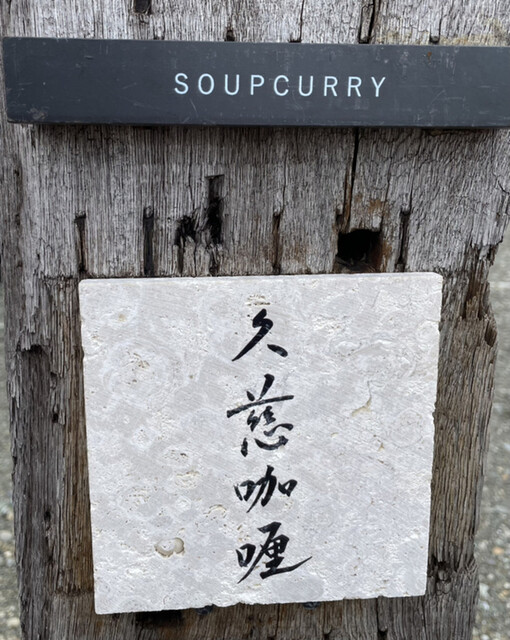 SOUPCURRY
久慈咖喱